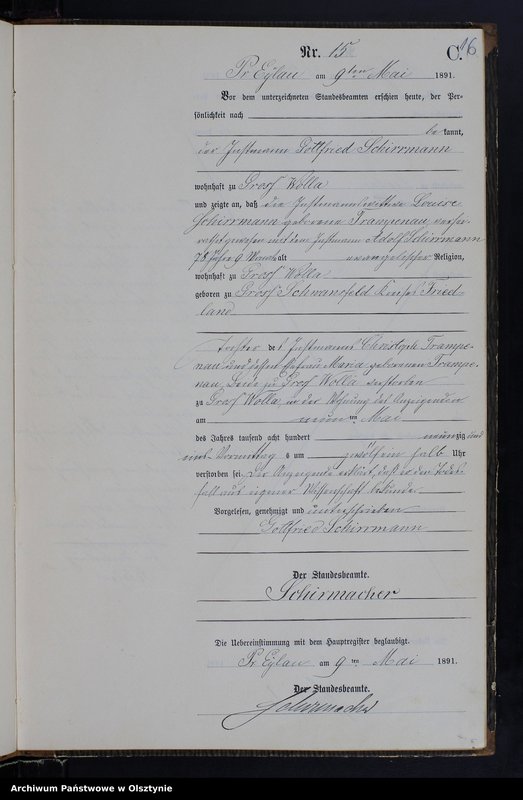 16
Nr. 15
C.
Pr. Eylau am 9ten Mai 1891.
Vor dem unterzeichneten Standesbeamten erschien heute, der Per-
sönlichkeit nach
be kannt,
der Instmann Gottfried Schirrmann
wohnhaft zu Gross Wolla
und zeigte an, daß die Instmannswittwe Louise
Schirrmann geborene Trampenau, verhei-
rathet gewesen mit dem Instmann Adolf Schirrmann
78 Jahre 9 Monat alt evangelischer Religion,
wohnhaft zu Gross Wolla
geboren zu Gross Schwansfeld Kreises Fried-
land
Tochter des Instmanns Christoph Trampe-
nau und dessen Ehefrau Maria geborenen Trampe-
nau, Beide zu Gross Wolla verstorben
zu Gross Wolla in der Wohnung des Anzeigenden
am neun ten Mai
des Jahres tausend acht hundert neunzig und
eins Vormittags um zwölfein halb Uhr
verstorben sei. Der Anzeigende erklärt, daß er den Todes-
fall aus eigener Wissenschaft bekunde.
Vorgelesen, genehmigt und unterschrieben
Gottfried Schirrmann
Der Standesbeamte.
Schirmacher
Die Uebereinstimmung mit dem Hauptregister beglaubigt.
Pr. Eylau am 9 ten Mai 1891.
Der Standesbeamte.
Schirmacher
Archiwum Państwowe w Olsztynie